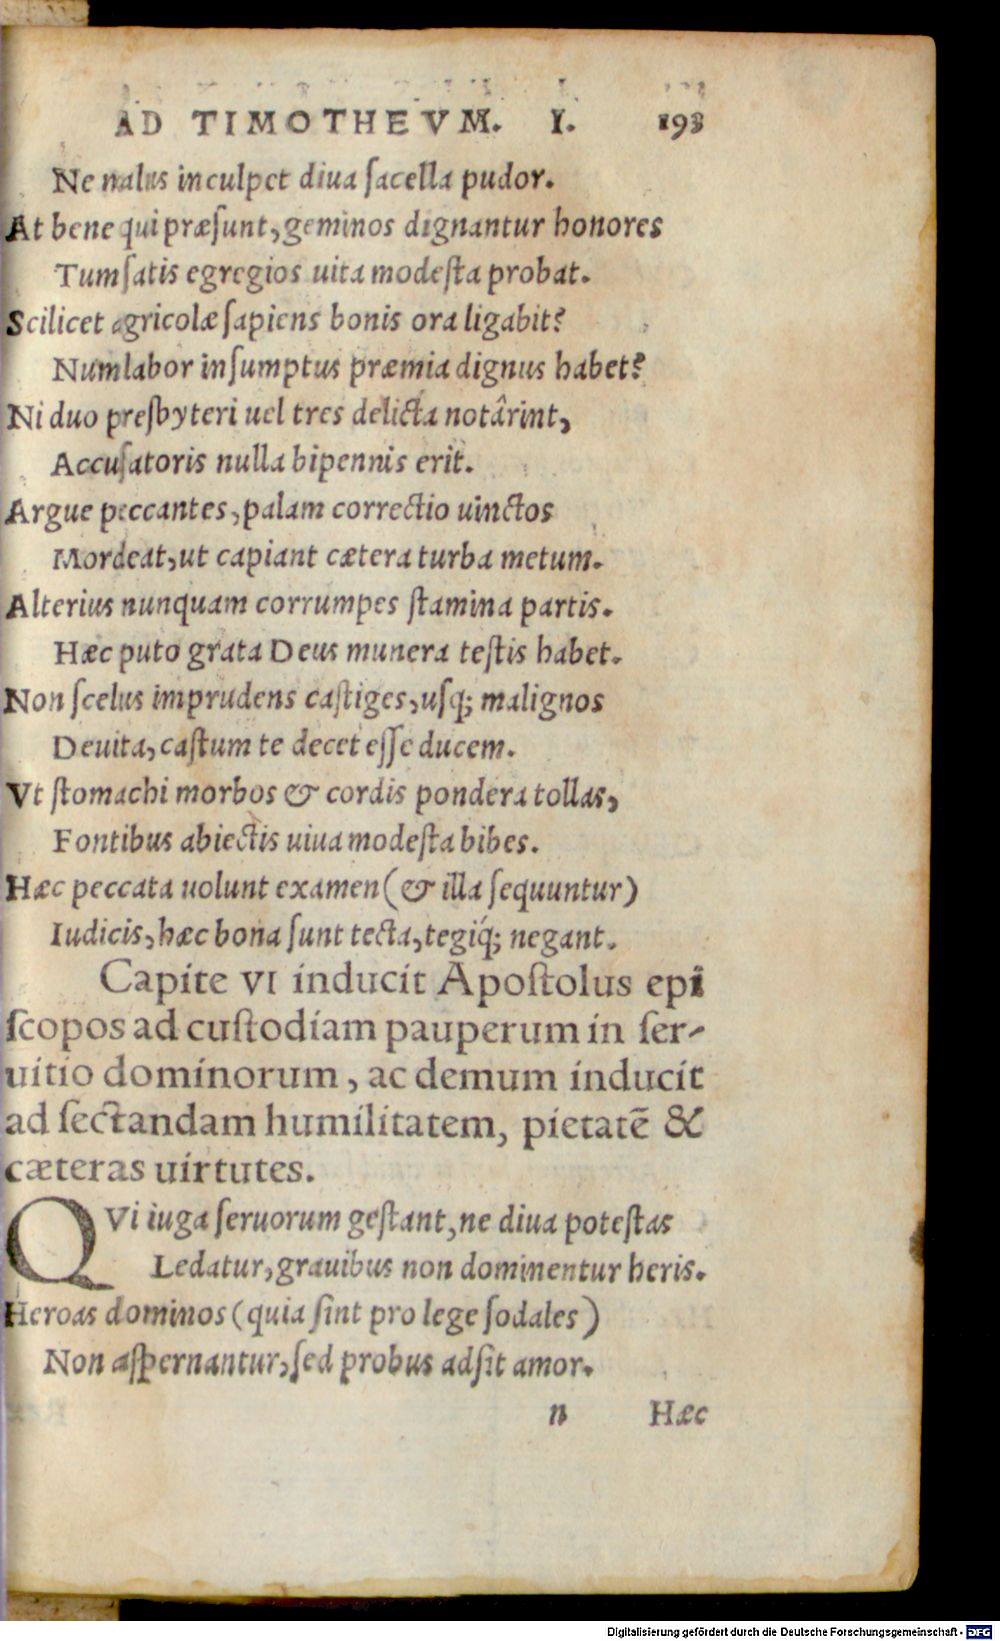 AD TIMOTHEVM. I. 193
Ne nalus inculpet diua ſacella pudor.
At bene qui præſunt, geminos dignantur honores
Tum ſatis egregios uita modeſta probat.
Scilicet agricolæ ſapiens bonis ora ligabit?
Num labor inſumptus præmia dignus habet?
Ni duo preſbyteri uel tres delicta notârint,
Accuſatoris nulla bipennis erit.
Argue peccantes, palam correctio uinctos
Mordeat, ut capiant cætera turba metum.
Alterius nunquam corrumpes ſtamina partis.
Hæc puto grata Deus munera teſtis habet.
Non ſcelus imprudens caſtiges, uſq; malignos
Deuita, caſtum te decet eſſe ducem.
Vt ſtomachi morbos & cordis pondera tollas,
Fontibus abiectis uiua modeſta bibes.
Hæc peccata uolunt examen (& illa ſequuntur)
Iudicis, hæc bona ſunt tecta, tegiq́; negant.
Capite VI inducit Apoſtolus epi
ſcopos ad cuſtodiam pauperum in ſer-
uitio dominorum, ac demum inducit
ad ſectandam humilitatem, pietatē &
cæteras uirtutes.
QVi iuga ſeruorum geſtant, ne diua poteſtas
Ledatur, grauibus non dominentur heris.
Heroas dominos (quia ſint pro lege ſodales)
Non aſpernantur, ſed probus adſit amor.
n Hæc
Digitalisierung gefördert durch die Deutsche Forschungsgemeinschaft - DFG